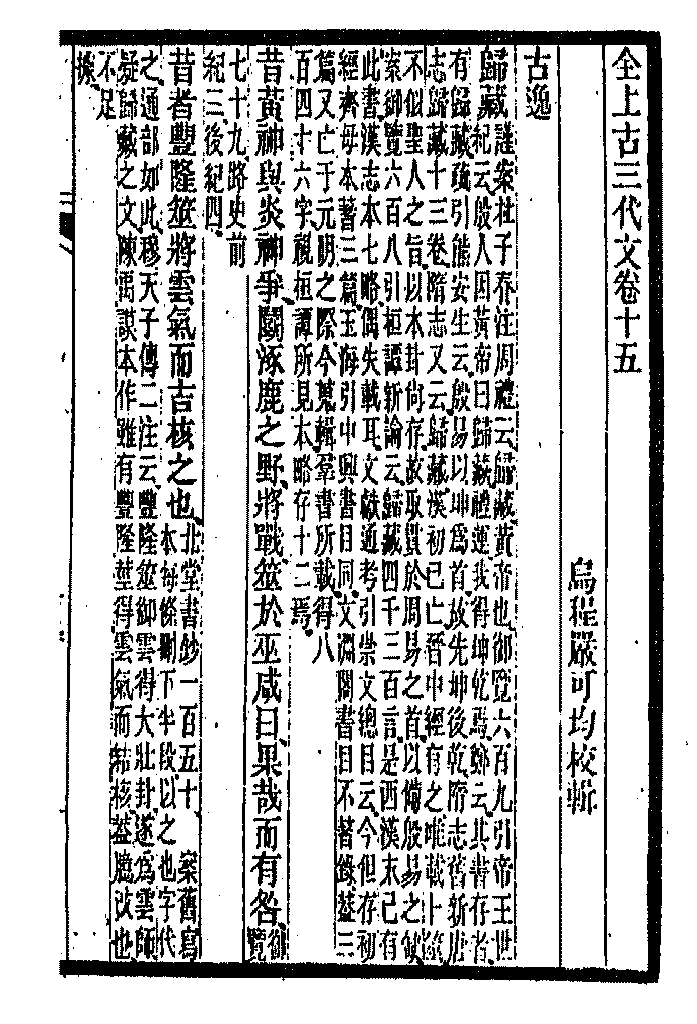 全上古三代文卷十五
烏程嚴可均校輯
古逸
歸藏謹案杜子春注周禮云歸藏黃帝也御覽六百九引帝王世
紀云殷人因黃帝曰歸藏禮運我得坤乾焉鄭云其書存者
有歸藏疏引熊安生云殷易以坤爲首故先坤後乾隋志舊新唐
志歸藏十三卷隋志又云歸藏漢初已亡晉中經有之唯載卜筮
不似聖人之旨以本卦尚存故取貫於周易之首以備殷易之缺
案御覽六百八引桓譚新論云歸藏四千三百言是西漢末已有
此書漢志本七略偶失載耳文獻通考引崇文總目云今但存初
經齊母本蓍三篇玉海引中興書目同文淵閣書目不著錄蓋三
篇又亡于元明之際今蒐輯羣書所載得八
百四十六字視桓譚所見本略存十二焉
昔黃神與炎神爭鬭涿鹿之野將戰筮於巫咸曰果哉而有咎御覽
七十九路史前
紀三後紀四
昔者豐隆筮將雲氣而吉核之也北堂書鈔一百五十 案舊寫
本每條刪下半段以之也字代
之通部如此穆天子傳二注云豐隆筮御雲得大壯卦遂爲雲師
疑歸藏之文陳禹謨本作雖有豐隆莖得雲氣而𥿄核蓋臆改也
不足
據